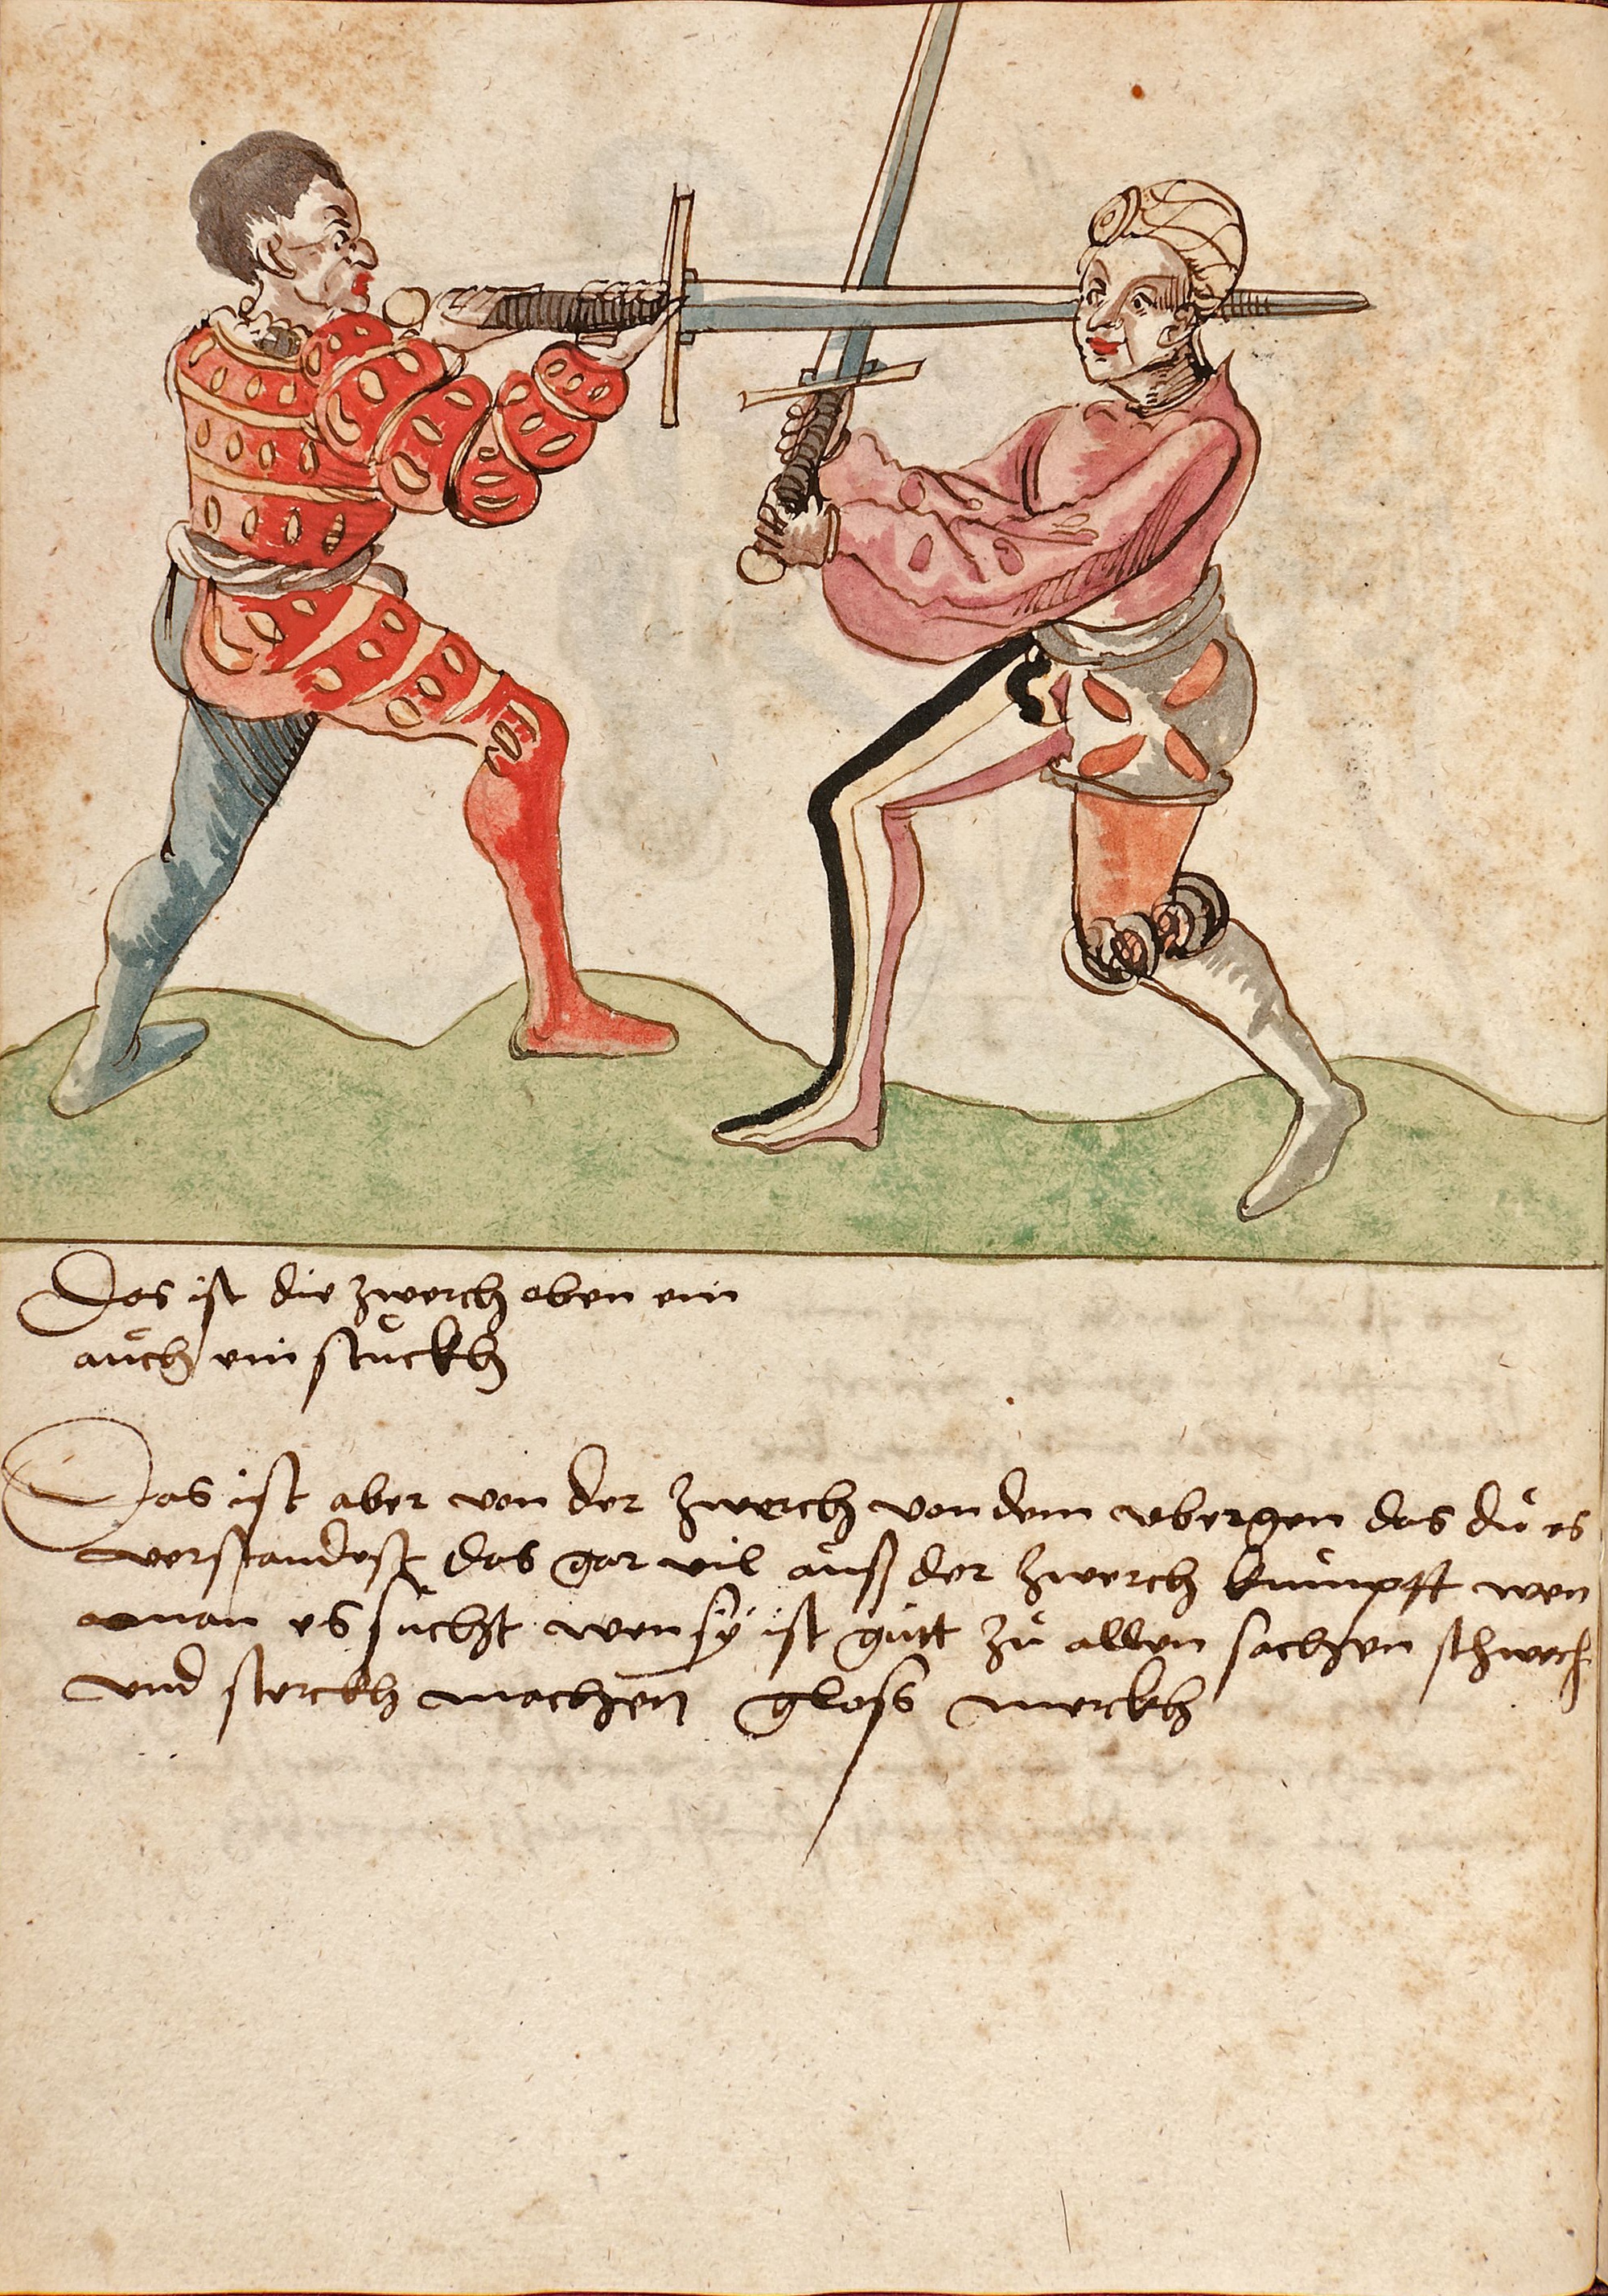 Das ist die zwerch oben ein
aůch ein stůckh
Das ist aber von der zwerch von dem vbergen das dů es
verstandest das gar vil aůß der zwerch kůmpft wen
man es sůcht wen sÿ ist gůtt zů allen sachen schwech
vnd sterckh machen gloss merckh